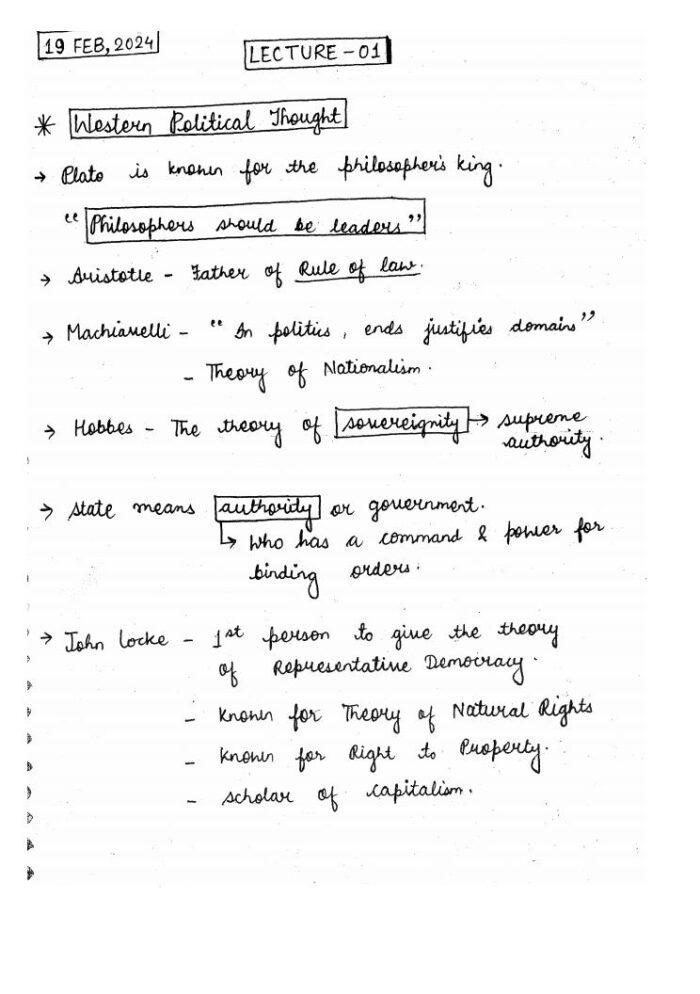 19 FEB, 2024
LECTURE - 01
* Western Political Thought
→ Plato is known for the philosopher's king.
"Philosophers should be leaders"
→ Aristotle - Father of Rule of law.
→ Machiavelli - "In politics, ends justifies domains"
- Theory of Nationalism.
→ Hobbes - The theory of sovereignity → supreme
authority.
→ state means authority or government.
↳ who has a command & power for
binding orders.
→ John Locke - 1st person to give the theory
of Representative Democracy.
- Known for Theory of Natural Rights
- Known for Right to Property.
- scholar of capitalism.